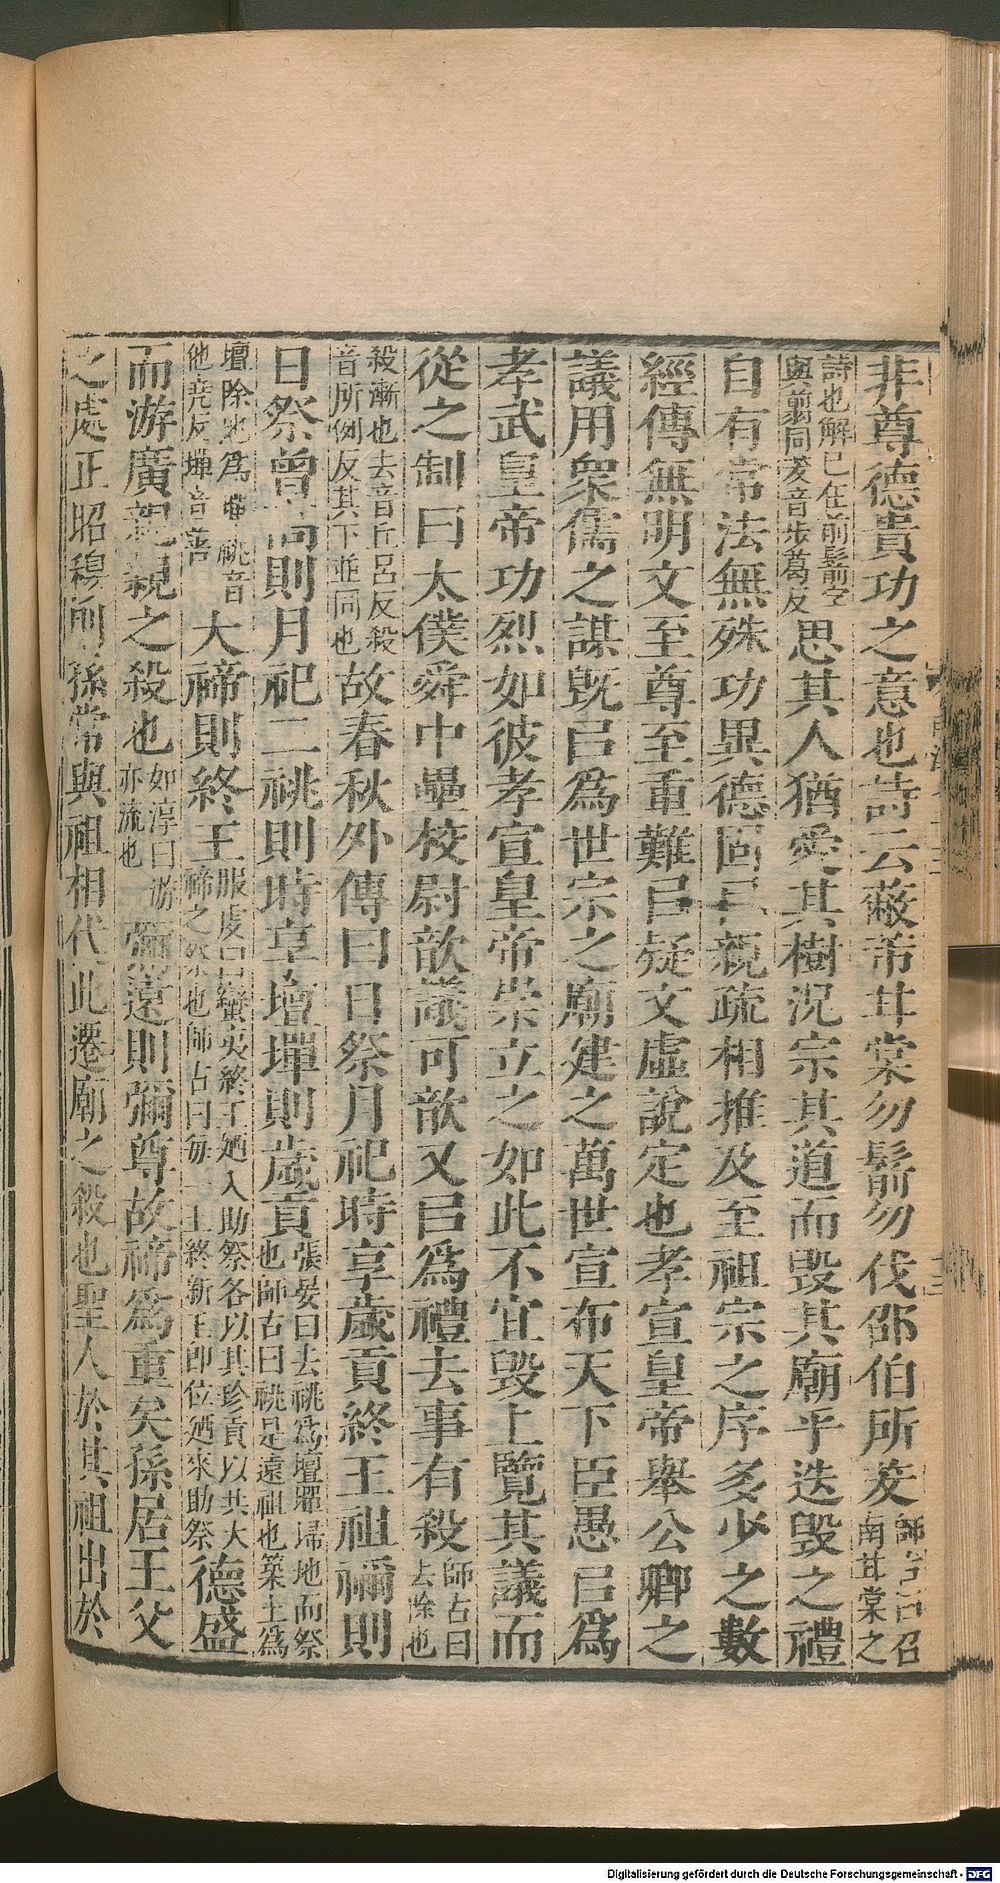 非尊德貴功之意也詩云蔽芾甘棠勿鬋勿伐邵伯所茇師古曰召南甘棠之
詩也解已在前鬋字與翦同茇音步葛反思其人猶愛其樹況宗其道而毀其廟乎迭毀之禮
自有常法無殊功異德固㠯親疏相推及至祖宗之序多少之數
經傳無明文至尊至重難㠯疑文虛說定也孝宣皇帝舉公卿之
議用衆儒之謀旣㠯爲世宗之廟建之萬世宣布天下臣愚㠯爲
孝武皇帝功烈如彼孝宣皇帝崇立之如此不宜毀上覽其議而
從之制曰太僕舜中壘校尉歆議可歆又㠯爲禮去事有殺師古曰去除也
殺漸也去音丘呂反殺音所例反其下並同也故春秋外傳曰日祭月祀時享歲貢終王祖禰則
日祭曾高則月祀二祧則時享壇墠則歲貢張晏曰去祧爲壇墠埽地而祭也師古曰祧是遠祖也築土爲
壇除地爲墠祧音他堯反墠音善大禘則終王服虔曰蠻夷終王廼入助祭各以其珍貢以共大禘之祭也師古曰每一王終新王卽位廼來助祭德盛
而游廣親親之殺也如淳曰游亦流也彌遠則彌尊故禘爲重矣孫居王父
之處正昭穆則孫常與祖相代此遷廟之殺也聖人於其祖出於
Digitalisierung gefördert durch die Deutsche Forschungsgemeinschaft - DFG